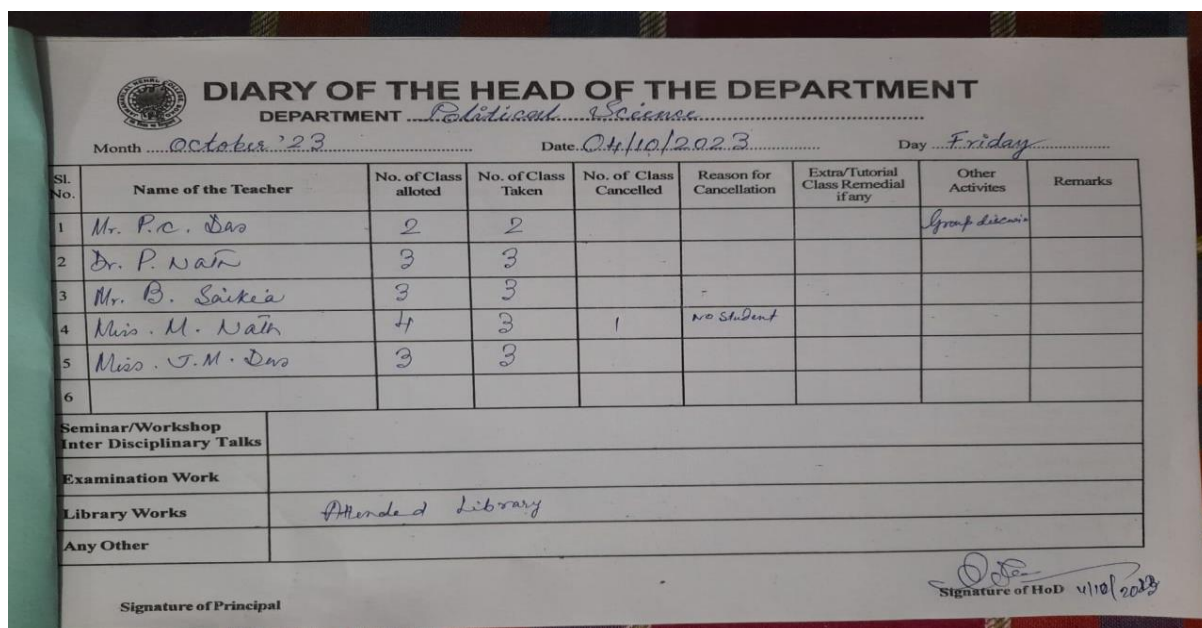 DIARY OF THE HEAD OF THE DEPARTMENT
DEPARTMENT Political Science
Month October '23 Date 04/10/2023 Day Friday
Sl. No. Name of the Teacher No. of Class alloted No. of Class Taken No. of Class Cancelled Reason for Cancellation Extra/Tutorial Class Remedial if any Other Activites Remarks
1 Mr. P.C. Das 2 2 Group discussion
2 Dr. P. Nath 3 3
3 Mr. B. Saikia 3 3 -
4 Miss. M. Nath 4 3 1 No Student
5 Miss. J.M. Das 3 3
6
Seminar/Workshop
Inter Disciplinary Talks
Examination Work
Library Works Attended Library
Any Other
Signature of Principal Signature of HoD 4/10/2023